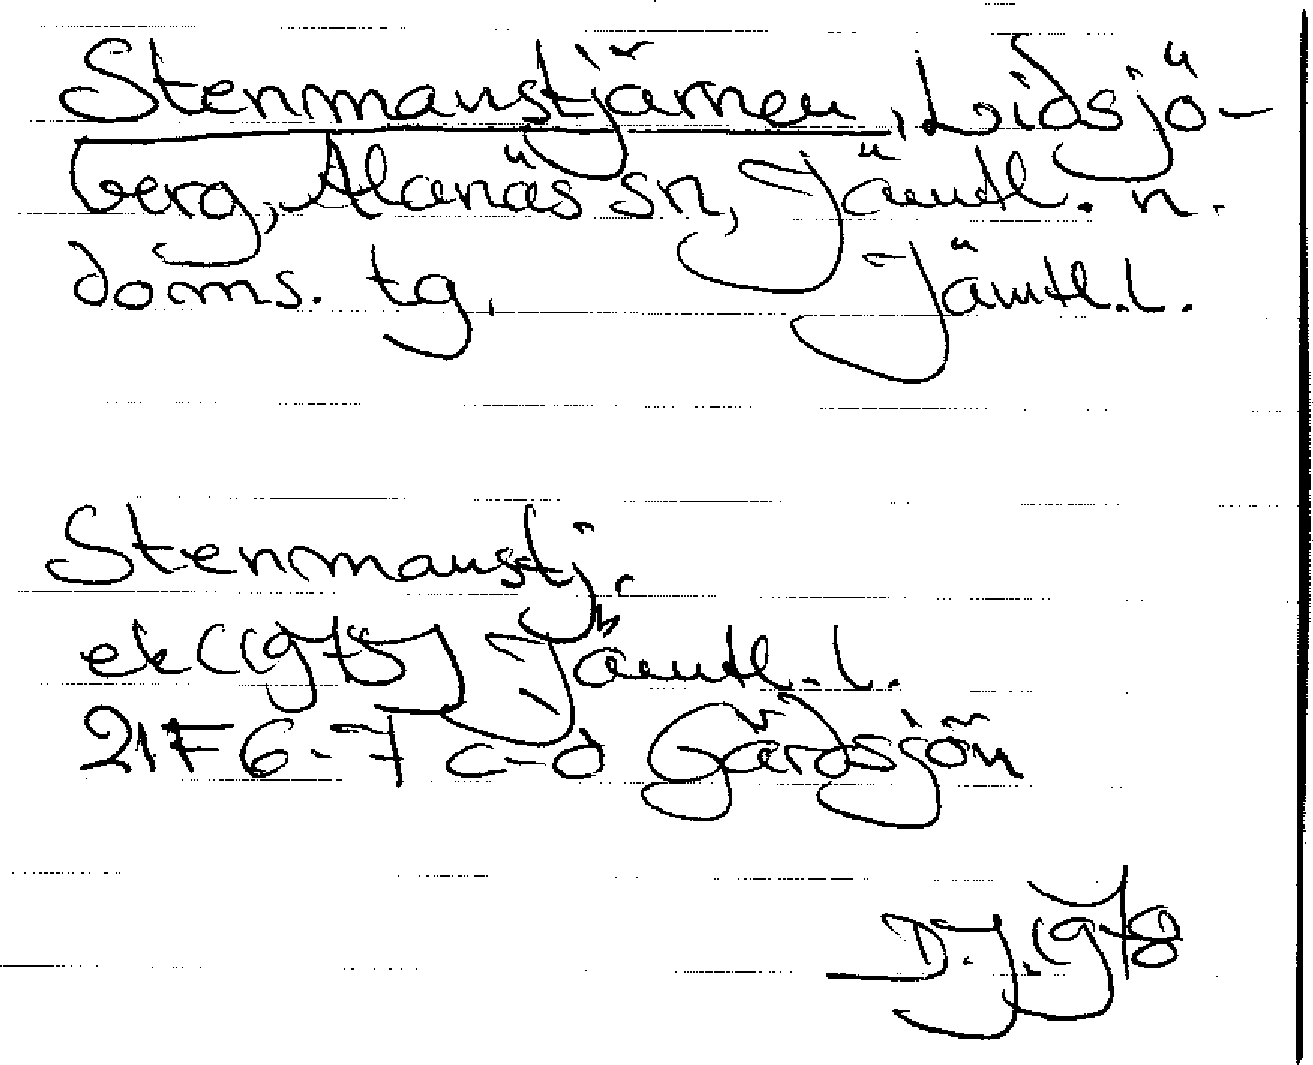 Stenmanstjärnen, Lidsjö-
berg, Alanäs sn, Jämtl. n.
doms. tg. Jämtl. l.
Stenmanstj.
ek (1975) Jämtl. l.
21F 6-7 c-d Gårdsjön
D.J. 1978